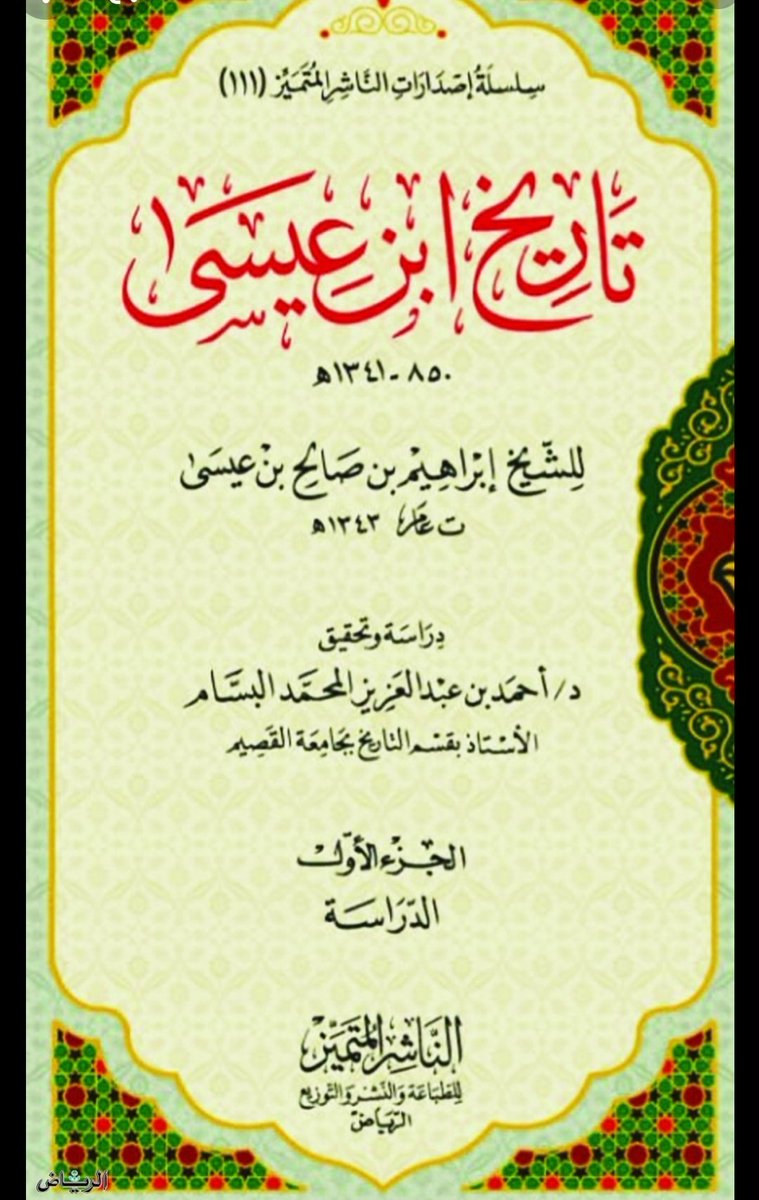 سِلسِلَةُ إصدَارَاتِ النَّاشِرِ المُتَمَيِّز (١١١)
تَارِيخ ابن عِيسَى
٨٥٠ - ١٣٤١هـ
لِلشَّيخ إبرَاهِيم بن صَالِح بن عِيسَى
ت عَام ١٣٤٣هـ
دِرَاسَة وتحقيق
د/ أحمَد بن عَبْد العَزيز المحمَّد البسَّام
الأسْتاذ بقسْم التاريخ بجَامِعَة القصِيم
الجُزء الأوّل
الدّرَاسَة
النَّاشِر المُتَمَيِّز
للطبَاعَة وَالنّشْر وَالتَّوزيع
الرِّيَاض
الرياض